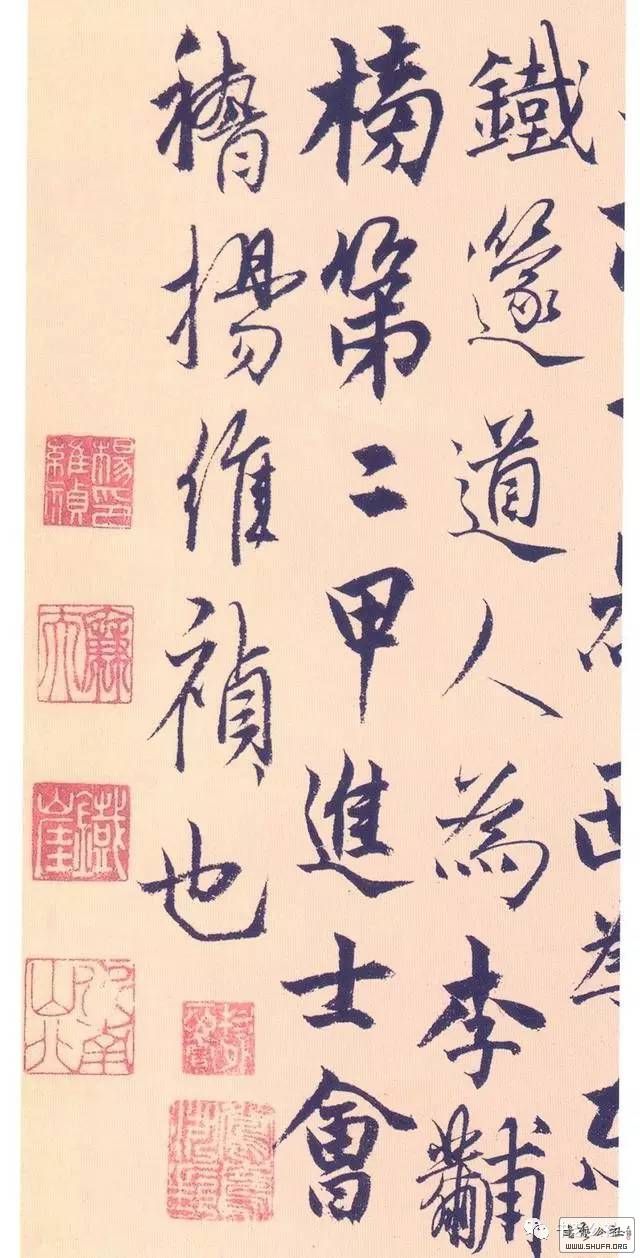 鐵篴道人為李黼
榜第二甲進士會
稽楊維禎也
楊維禎印
廉夫
鐵崖
WWW.SHUFA.ORG